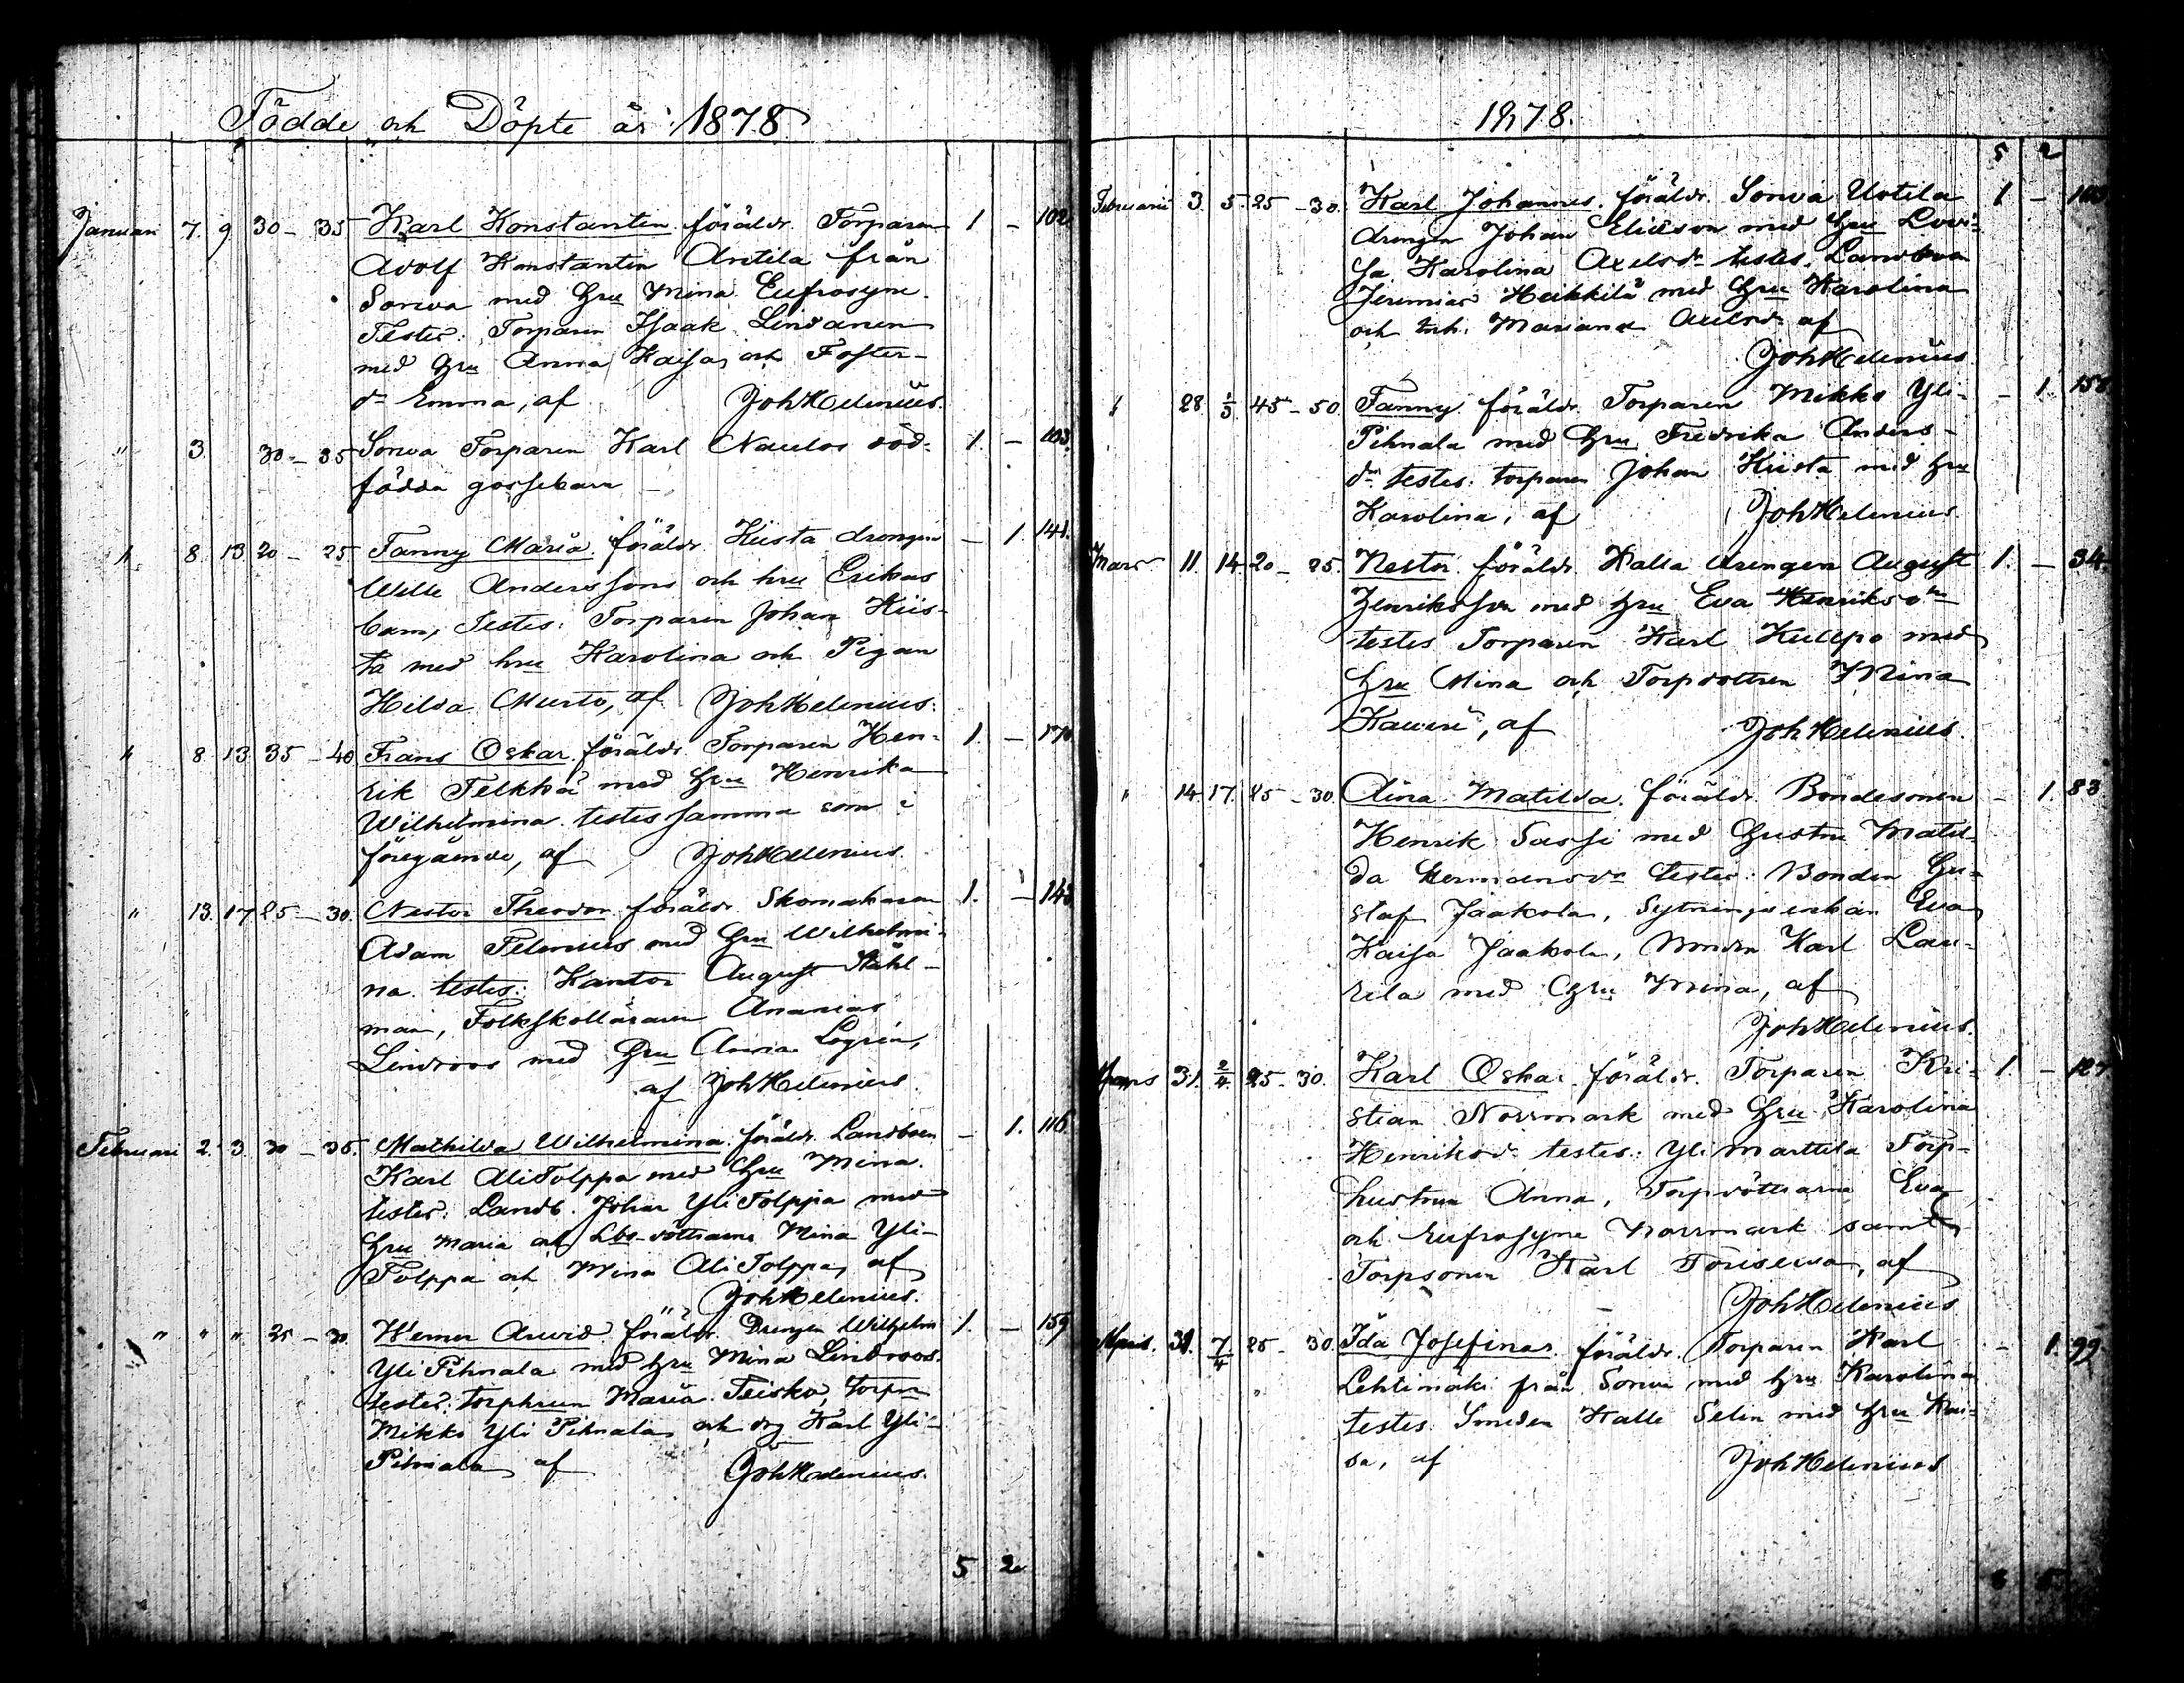 Födde och Döpte år 1878
Januari 7. 9 30 - 35 Karl Konstantin. föräldr. Torparen 1 - 102
Adolf Konstantin Antila från
Sorwa med Hru Mina Eufrosyne.
Testes: Torparen Isaak Lindanen
med Hru Anna Kaisa, och Foster-
dr Emma, af JohHelenius.
" 3. 30 - 35 Sorwa Torparen Karl Naulos död- 1. - 103.
födda gossebarn -
" 8. 13 20 - 25 Fanny Maria. föräldr. Kiista drengen - 1. 141.
Wille Anderssons och hru Erikas
barn, Testes: Torparen Johan Kiis-
ta med hru Karolina och Pigan
Hilda Murto, af JohHelenius.
" 8. 13 35 - 40 Frans Oskar. föräldr. Torparen Hen- 1. - 170
rik Telkkä med Hru Henrika
Wilhelmina. testes samma som i
föregående, af JohHelenius.
" 13. 17 25 - 30. Nestor Theodor. föräldr. Skomakaren 1. - 143
Adam Felenius med Hru Wilhelmi-
na. testes: Kantor August Ståhl-
man, Folkskolläraren Ananias
Lindroos med Hru Logrén,
af JohHelenius.
Februari 2. 3. 30 - 35. Mathilda Wilhelmina. föräldr. Landboen - 1. 116.
Karl AliTolppa med Hru Mina.
testes: Landb. Johan YliTolppa med
Hru Maria och Lbo-döttrarna Mina Yli-
Tolppa och Mina AliTolppa, af
JohHelenius.
" " " 25 - 30 Werner Arwid. föräldr. Drengen Wilhelm 1. - 159
Yli Pihnala med hru Mina Lindroos.
testes: torphrun Maria Teisko, torpn
Mikko Yli Pihnala och drg Karl Yli-
Pihnala af JohHelenius.
5 2
1878.
5 2
Februari 3. 5. 25 - 30. Karl Johannes. föräldr. Sorwa Uotila 1 -
drengen Johan Elieson med Hru Lovi-
sa Karolina Axelsdr testes. Landboen
Jeremias Heikkilä med Hru Karolina
och Inh. Mariana Axelsdr af
JohHelenius
" 28 1/3 45 - 50 Fanny. föräldr. Torparen Mikko Yli- - 1. 158
Pihnala med Hru Fredrika Anders-
dr. testes: torparen Johan Kiista med hru
Karolina, af JohHelenius.
Mars 11. 14. 20 - 25. Nestor. föräldr. Kalla drengen August 1. - 34.
Henriksson med Hru Eva Henriksdr
testes Torparen Karl Kullpo med
Hru Mina och Torpdottren Mina
Kaueri, af JohHelenius.
" 14. 17. 25 - 30 Aina Matilda. föräldr. Bondesonen - 1. 83
Henrik Sassi med Hustru Matil-
da Hermansdr testes: Bonden Gu-
staf Jaakola, Sytningsenkan Eva
Kaisa Jaakola, Bonden Karl Lau-
rila med Hru Mina, af
JohHelenius.
Mars 31. 2/4 25 - 30. Karl Oskar. föräldr. Torparen Kri- 1 -
stian Norrmark med Hru Karolina
Henriksdr testes: Yli Marttila Torp-
hustrun Anna, Torpdöttrarna Eva
och Eufrosyne Norrmark samt
Torpsonen Karl Toriseva, af
JohHelenius
Mars. 31. 7/4 25 - 30. Ida Josefina. föräldr. Torparen Karl - 1. 99
Lehtimäki från Sorwa med hru Karolina
testes. Smeden Kalle Selin med Hru Kai-
sa, af JohHelenius